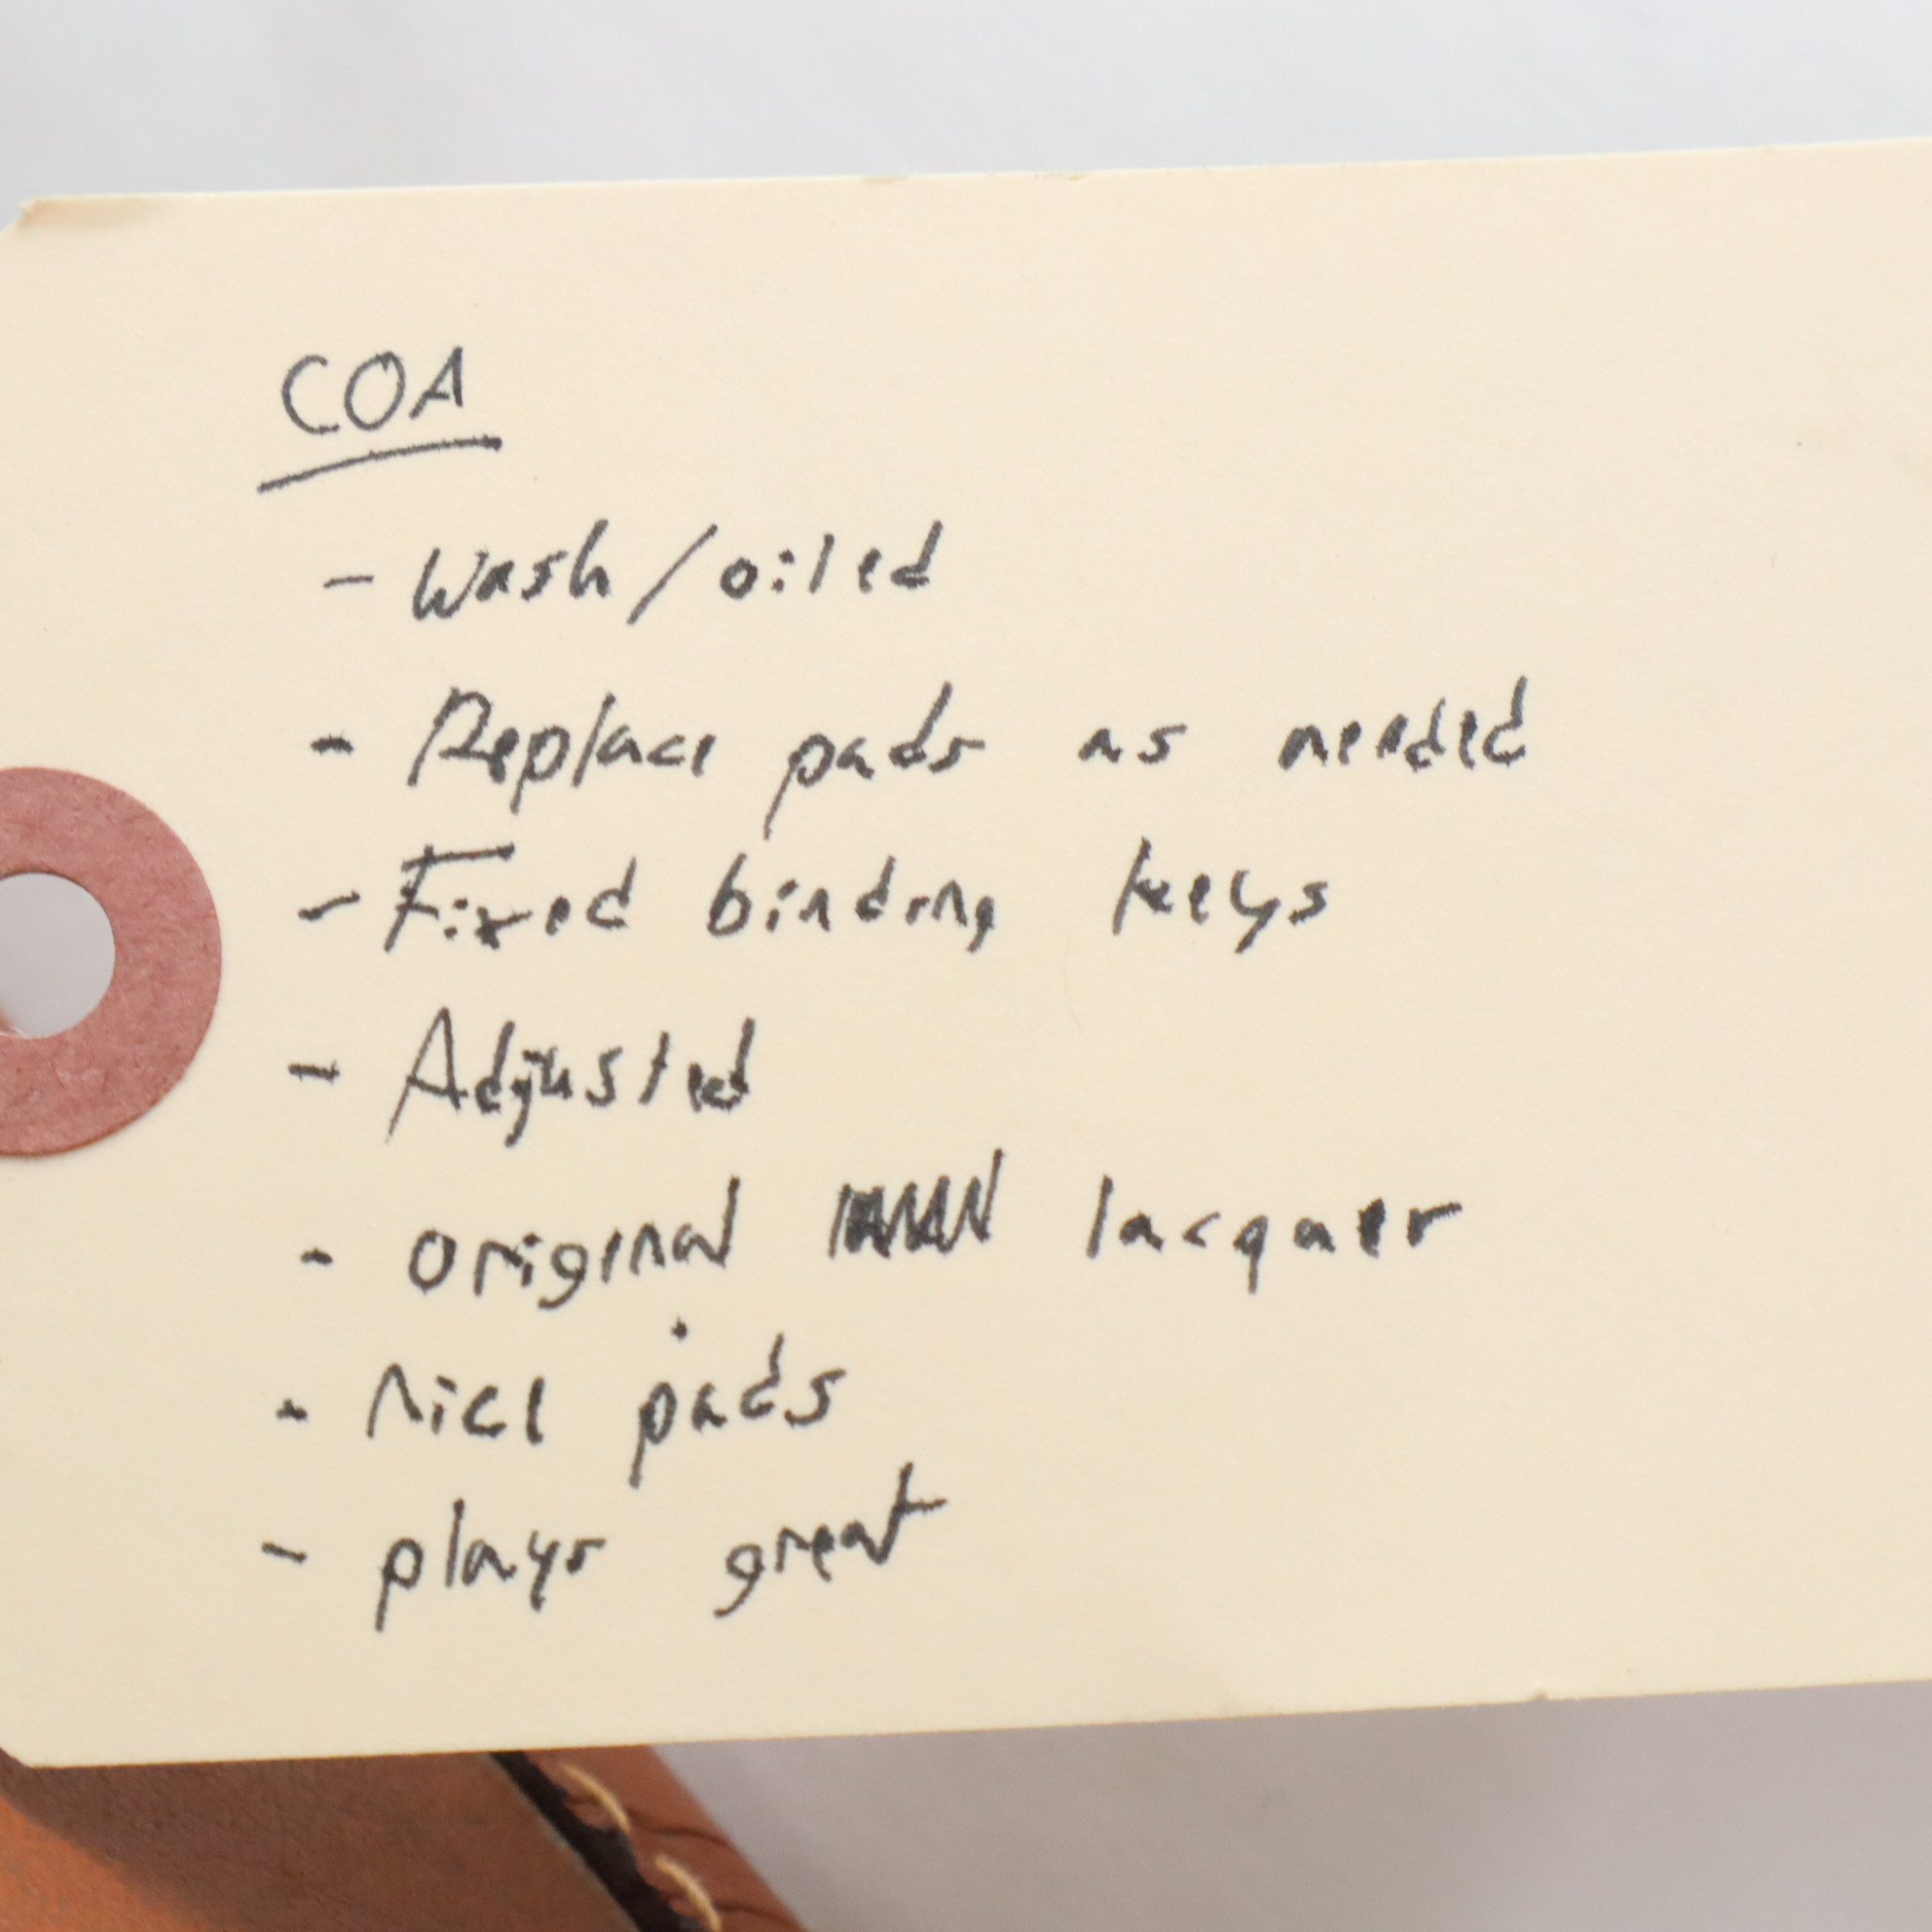 COA
- Wash/oiled
- Replace pads as needed
- Fixed binding keys
- Adjusted
- original lacquer
- nice pads
- plays great